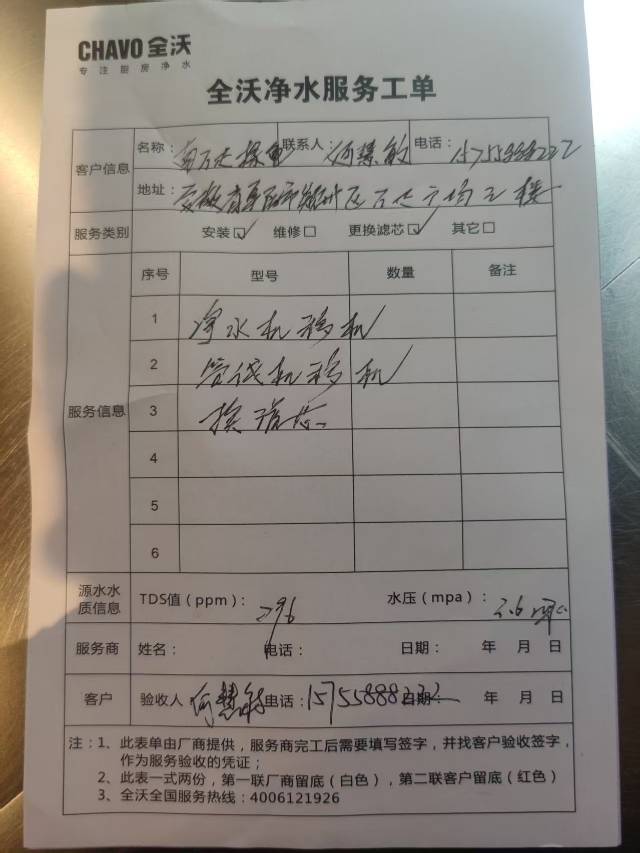 CHAVO 全沃
专注厨房净水
全沃净水服务工单
客户信息
名称: 联系人: 何慧敏 电话:
地址: 万达广场三楼
服务类别 安装☑ 维修□ 更换滤芯☑ 其它□
服务信息
序号 型号 数量 备注
1 净水机移机
2 管线机移机
3 换滤芯
4
5
6
源水水质信息 TDS值(ppm): 296 水压(mpa):
服务商 姓名: 电话: 日期: 年 月 日
客户 验收人 何慧敏 电话: 15755888232 日期: 年 月 日
注:1、此表单由厂商提供,服务商完工后需要填写签字,并找客户验收签字,
作为服务验收的凭证;
2、此表一式两份,第一联厂商留底(白色),第二联客户留底(红色)
3、全沃全国服务热线:4006121926